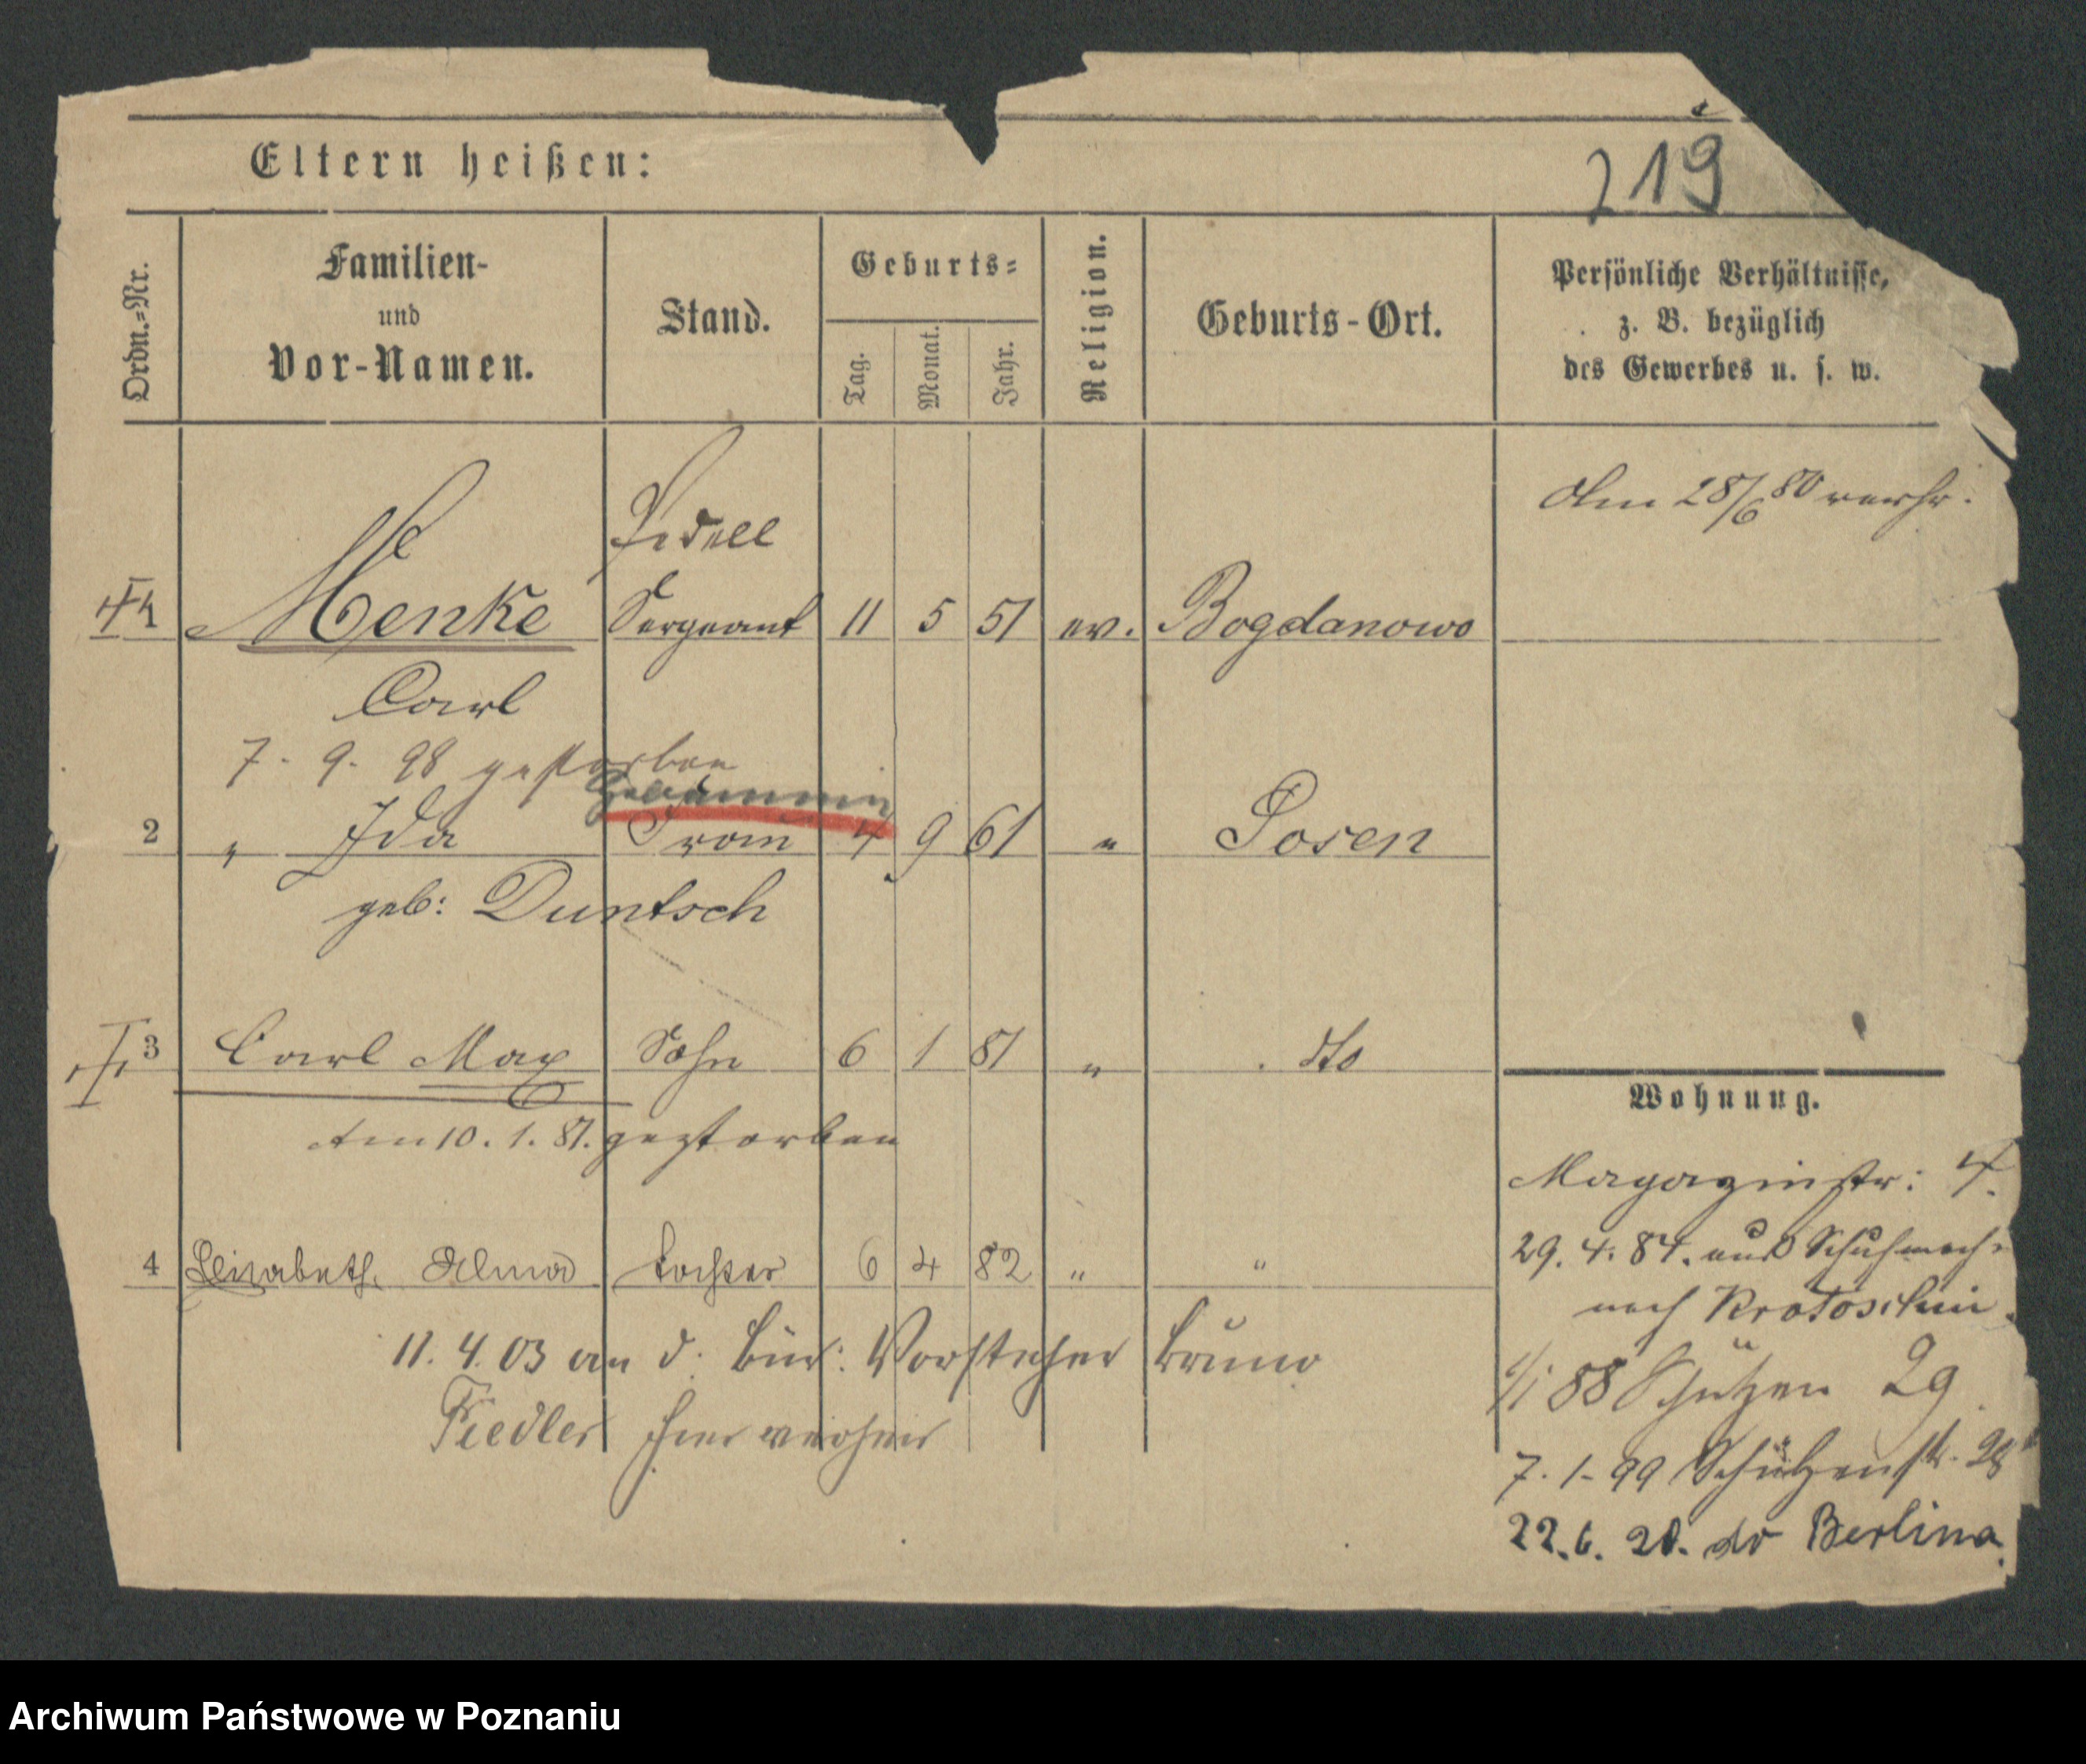 Eltern heißen:
219
Ordn.=Nr.
Familien-
und
Vor-Namen.
Stand.
Geburts=
Tag.
Monat.
Jahr.
Religion.
Geburts-Ort.
Persönliche Verhältnisse,
z. B. bezüglich
des Gewerbes u. s. w.
Am 28/6 80 verhr.
1 Menke Sergeant 11 5 51 ev. Bogdanowo
Carl
7. 9. 98 gestorben
2 " Ida Frau 4 9 61 " Posen
geb: Duntsch
3 Carl Max Sohn 6 1 81 " dto
Am 10. 1. 81. gestorben
4 Elisabeth Alma Tochter 6 4 82 " "
11. 4. 03 an d. Bür: Vorsteher Bruno
Fiedler hier verheir
Wohnung.
Magazinstr: 4.
29. 4. 84. aus Schuhmach.
nach Krotoschin.
1/1 88 Schützen 29
7. 1. 99 Schützenstr. 28
22. 6. 20. do Berlina.
Archiwum Państwowe w Poznaniu